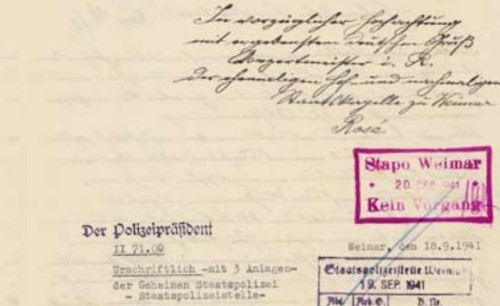 In vorzüglicher Hochachtung
mit ergebenstem deutschen Gruß
Konzertmeister i. R.
der ehemaligen Hof- und nachmaligen
Staatskapelle zu Weimar
Rosé
Stapo Weimar
20. SEP. 1941
Kein Vorgang
Der Polizeipräsident
II 71.00
Weimar, den 18.9.1941
Urschriftlich -mit 3 Anlagen-
der Geheimen Staatspolizei
- Staatspolizeistelle-
Staatspolizeistelle Weimar
19. SEP. 1941